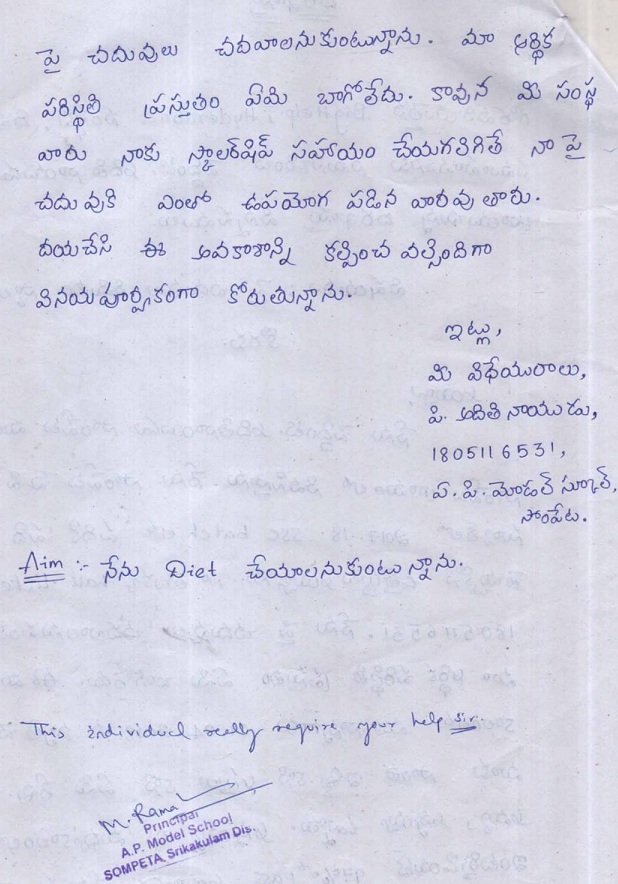 పై చదువులు చదవాలనుకుంటున్నాను. మా ఆర్థిక
పరిస్థితి ప్రస్తుతం ఏమి బాగోలేదు. కావున మీ సంస్థ
వారు నాకు స్కాలర్‌షిప్ సహాయం చేయగలిగితే నా పై
చదువుకి ఎంతో ఉపయోగ పడిన వారవుతారు.
దయచేసి ఈ అవకాశాన్ని కల్పించ వల్సిందిగా
వినయపూర్వకంగా కోరుతున్నాను.
ఇట్లు,
మీ విధేయురాలు,
పి. అదితి నాయుడు,
1805116531,
ఏ. పి. మోడల్ స్కూల్,
సోంపేట.
Aim :- నేను Diet చేయాలనుకుంటున్నాను.
This individual really require your help sir.
M. Rama
Principal
A.P. Model School
SOMPETA, Srikakulam Dis.